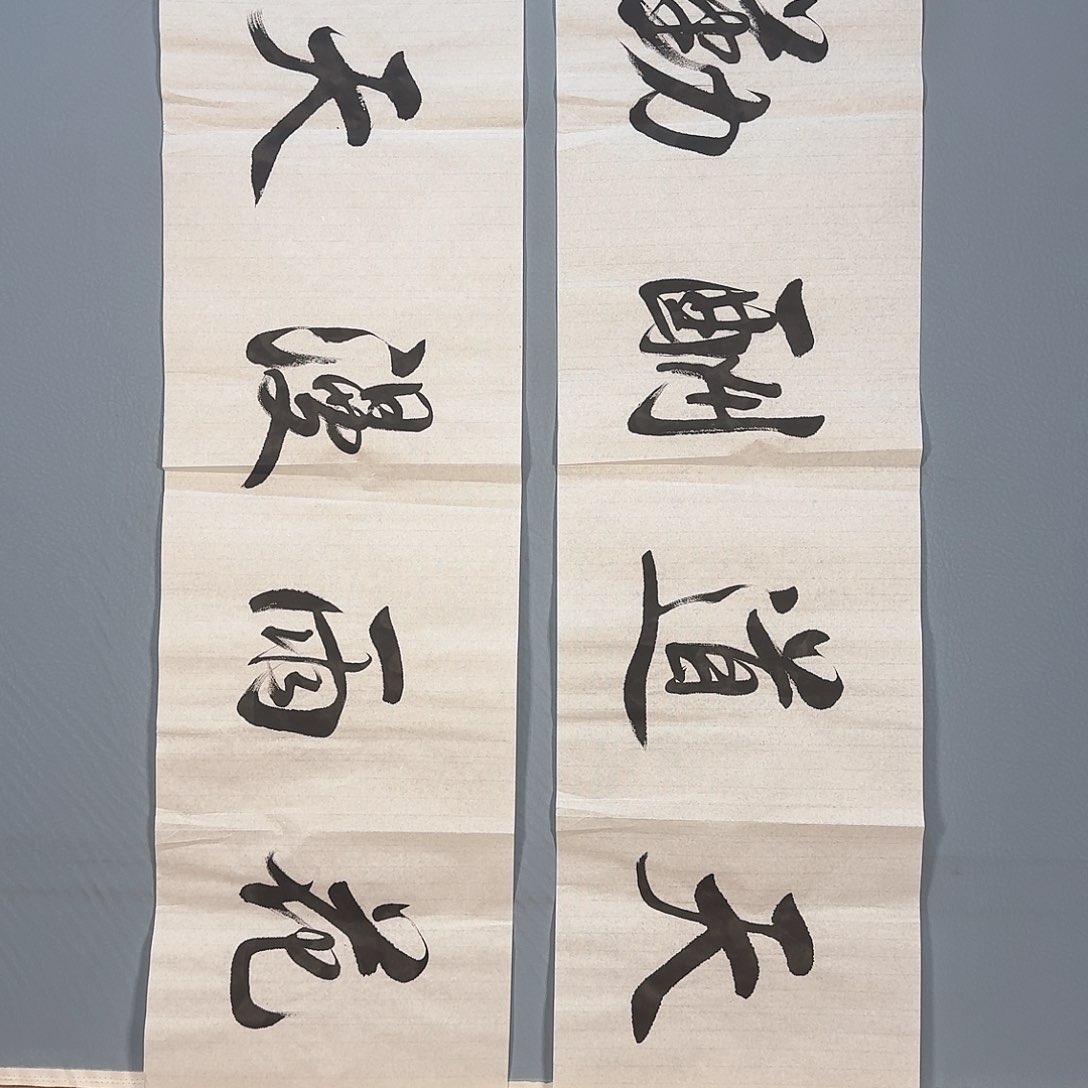 天道酬勤
花雨漫天